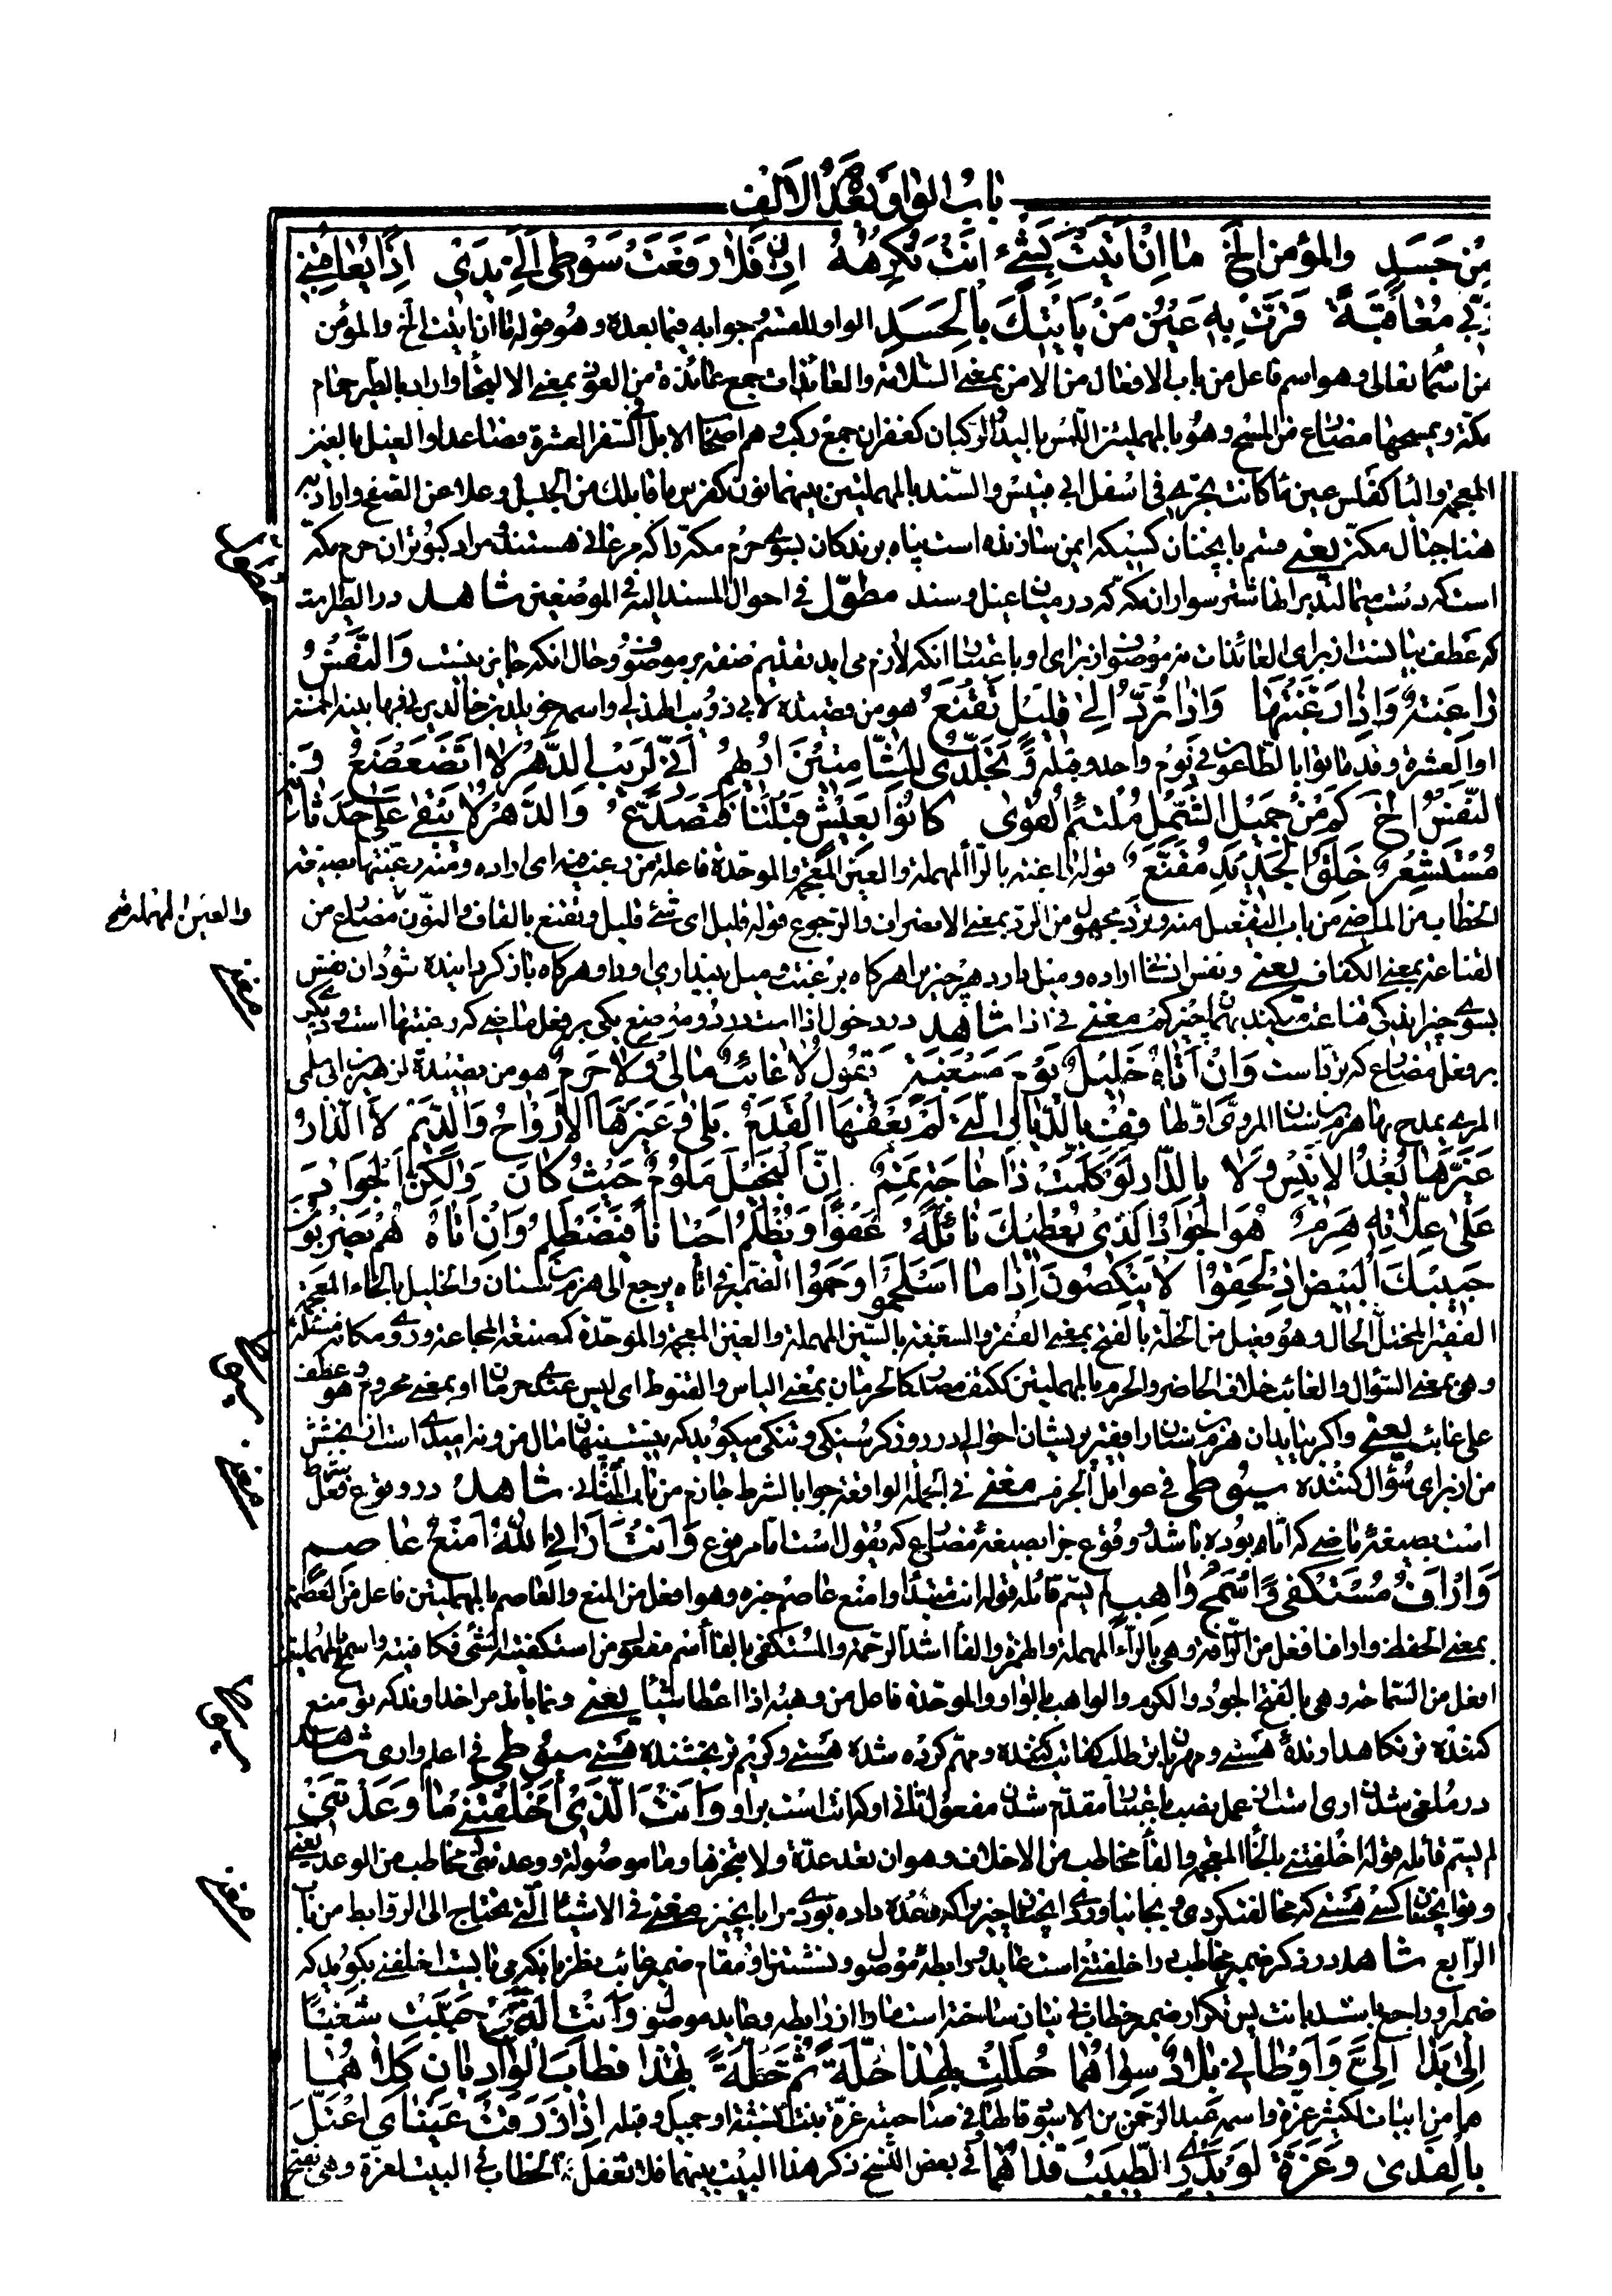 باب الواو بعده الالف
مِنْ حَسَدٍ والمؤمن الخ ما اِنْ اَتَيْتُ بِشَيْءٍ اَنْتَ تَكْرَهُهُ اِذَنْ فَلا رَفَعَتْ سَوْطی اِلَیَّ يَدی اِذًا يُعاقِبُنی
رَبّی مُعاقَبَةً قَرَّتْ بِها عَيْنُ مَنْ يَأتيكَ بِالْحَسَدِ الواو للقسم جوابه فيما بعده و هو قوله ما ان اتيت الخ والمؤمن
من اسمائه تعالى و هو اسم فاعل من باب الافعال من الامن بمعنى السلامة والعائذات جمع عائذة من العوذ بمعنى الالتجأ واراد بالطير حمام
مكة و يمسحها مضارع من المسح و هو بالمهملتين اللمس باليد والركبان كغفران جمع ركب و هم اصحاب الابل فى السفر العشرة فصاعدا والغيل بالغين
المعجمة والياء كفلس عين ماء كانت تجرى فى اسفل ابى قبيس والسند بالمهملتين بينهما نون كفرس ما قابلك من الجبل و علا عن السفح واراد به
هنا جبال مكة يعنى قسم بانچنان كسيكه ايمن سازنده است پناه برندگان بسوى حرم مكه را كه مرغانى هستند مراد كبوتران حرم مكه
است كه دست ميمالند برانها شتر سواران مكه كه در ميان غيل و سند مطوّل فى احوال المسند اليه فى الموضعين شاهد در الطير است
كه عطف بيانست از براى العائذات نه موصوف از براى او باعتبار انكه لازم مى ايد تقديم صفة بر موصوف و حال انكه جايز نيست وَالنَّفْسُ
راغِبَةٌ وَاِذا رَغَّبْتَها وَاِذا تُرَدُّ اِلى قَليلٍ تَقْنَعُ هو من قصيدة لابى ذويب الهذلى واسمه خويلد بن خالد يرثى فيها بنيه الخمسة
او العشرة و قد ماتوا بالطاعون فى يوم واحد و قبله وَ تَجَلُّدی لِلشّامِتينَ اُريهِمُ اَنّی لِرَيْبِ الدَّهْرِ لا اَتَضَعْضَعُ وَ
النَّفْسُ الخ كَمْ مِنْ جَميلِ الشَّمْلِ مُلْتَئِمِ الْهَوى كانُوا بِعَيْشٍ قَبْلَنا فَتَصَدَّعُوا وَالدَّهْرُ لا يَبْقى عَلى حَدَثانِهِ
مُسْتَشْعِرٌ حَلَقَ الْحَديدِ مُقَنَّعُ قوله راغبة بالراء المهملة والغين المعجمة والموحدة فاعلة من رغب فيه اى اراده و منه رغبتها بصيغة
الخطاب من الماضى من باب التفعيل منه و تردّ مجهول من الردّ بمعنى الانصراف والرجوع قوله قليل اى شئ قليل و تقنع بالقاف والنون مضارع من
والعين المهملة صح
القناعة بمعنى الكفاف يعنى و نفس انسان اراده و ميل دارد هر چيز را هرگاه برغبت و ميل بيندازى او را و هرگاه بازگردانيده شود ان نفس
بسوى چيز اندكى قناعت ميكند بهمان چيز كم مغنى فى اذا شاهد در دخول اذا است در دو موضع يكى بر فعل ماضى كه رغبتها است و ديگرى
بر فعل مضارع كه تردّ است وَاِنْ اَتاهُ خَليلٌ يَوْمَ مَسْغَبَةٍ يَقُولُ لا غائِبٌ مالی وَلا حَرِمُ هو من قصيدة لزهير بن ابى سلمى
المرى يمدح بها هرم بن سنان المرى و اولها قِفْ بِالدِّيارِ الَّتی لَمْ يَعْفُهَا الْقِدَمُ بَلى وَ غَيَّرَهَا الْاَرْواحُ وَالدِّيَمُ لا الدّارُ
غَيَّرَها بُعْدُ الْاَنيسِ وَلا بِالدّارِ لَوْ كَلَّمَتْ ذا حاجَةٍ صَمَمُ اِنَّ الْبَخيلَ مَلُومٌ حَيْثُ كانَ وَلكِنَّ الْجَوادَ
عَلى عِلّاتِهِ هَرِمُ هُوَ الْجَوادُ الَّذی يُعْطيكَ نائِلَهُ عَفْوًا وَ يُظْلَمُ اَحْيانًا فَيَضْطَلِمُ وَاِنْ اَتاهُ هُمْ يَضْرِبُونَ
حَبيكَ الْبَيْضِ اِذْ لَحِقُوا لا يَنْكِصُونَ اِذا مَا اسْتَلْحَمُوا وَ حَمُوا الضمير فى اتاه يرجع الى هرم بن سنان والخليل بالخاء المعجمة
الفقير المختل الحال و هو فعيل من الخلة بالفتح بمعنى الفقر والسغبة بالسين المهملة والغين المعجمة والموحدة كمصنعة المجاعة و روى مكانه مسئلة
و هى بمعنى السؤال والغائب خلاف الحاضر والحرم بالمهملتين ككتف مصدر كالحرمان بمعنى الياس والقنوط اى ليس عندى حرمان او بمعنى محروم و هو عطف
على غائب يعنى و اگر بيايد ان هرم بن سنان را فقير پريشان احوالى در روز گرسنگى و تنگى ميگويد كه نيست پنهان مال من و نه اميدى است از بخشش
من از براى سؤال كننده سيوطى فى عوامل الجزم مغنى فى الجملة الواقعة جوابا لشرط جازم من باب الثانى شاهد در وقوع فعل شرط
است بصيغه ماضى كه اتاه بوده باشد و وقوع جزا بصيغه مضارع كه يقول است با مرفوع وَ اَنْتَ اَرانِیَ اللّهُ اَمْنَعُ عاصِمٍ
وَ اَرْاَفُ مُسْتَكْفًى وَ اَسْمَحُ واهِبٍ لم يسم قائله قوله انت مبتدأ وامنع عاصم خبره و هو افعل من المنع والعاصم بالمهملتين فاعل من العصمة
بمعنى الحفظ و ارأف افعل من الرأفة و هى بالراء المهملة والهمزة والفأ اشد الرحمة والمستكفى بالفأ اسم مفعول من استكفيته الشئ فكفانيه واسمح بالمهملتين
افعل من السماحة و هى بالفتح الجود والكرم والواهب بالواو والموحدة فاعل من وهبه اذا اعطاه شيئا يعنى و نماياند مرا خداوند كه تو منع
كننده تر نگاهدارنده هستى و مهربانتر طلب كفايت كننده و مهم كرده شده هستى و كريم تر بخشنده هستى سيوطى فى اعلم وارى شاهد
در ملغى شدن ارى است از عمل نصب باعتبار مقدم شدن مفعول ثانى او كه انت است براو وَ اَنْتَ الَّذی اَخْلَفْتَنی ما وَعَدْتَنی
لم يسم قائله قوله اخلفتنى بالخأ المعجمة والفأ مخاطب من الاخلاف و هو ان تعد عدة ولا تنجزها و ما موصولة و وعدتنى مخاطب من الوعد يعنى
و تو انچنان كسى هستى كه مخالفت كردى و بجا نياوردى انچنان چيزيرا كه وعده داده بودى مرا بان چيز مغنى فى الاشياء التى يحتاج الى الروابط من باب
الرابع شاهد در ذكر ضمير مخاطب در اخلفتنى است عايد و رابطه موصول و نشستن او مقام ضمير غائب نظر بانكه مى بايست اخلفنى بگويد كه
ضمير او راجع باشد بانت پس تكرار ضمير خطاب بى نياز ساخته است ما را از رابطه و عايد موصول وَ اَنْتِ الَّتی حَبَّبْتِ شَغْبًا
اِلى بَدا اِلَیَّ وَ اَوْطانی بِلادٌ سِواهُما حَلَلْتِ بِهذا حَلَّةً ثُمَّ حَلَّةً بِهذا فَطابَ الْوادِيانِ كِلاهُما
هما من ابيات لكثير عزة واسمه عبد الرحمن بن الاسود قالها فى صاحبته عزة بنت و قبله اِذا ذَرَفَتْ عَيْنایَ اَعْتَلُّ
بِالْقَذى وَ عَزَّةُ لَوْ يَدْرِی الطَّبيبُ قَذاهُما فى بعض النسخ ذكر هذا البيت بينهما فلا تغفل الخطاب فى البيت لعزة و هى بفتح